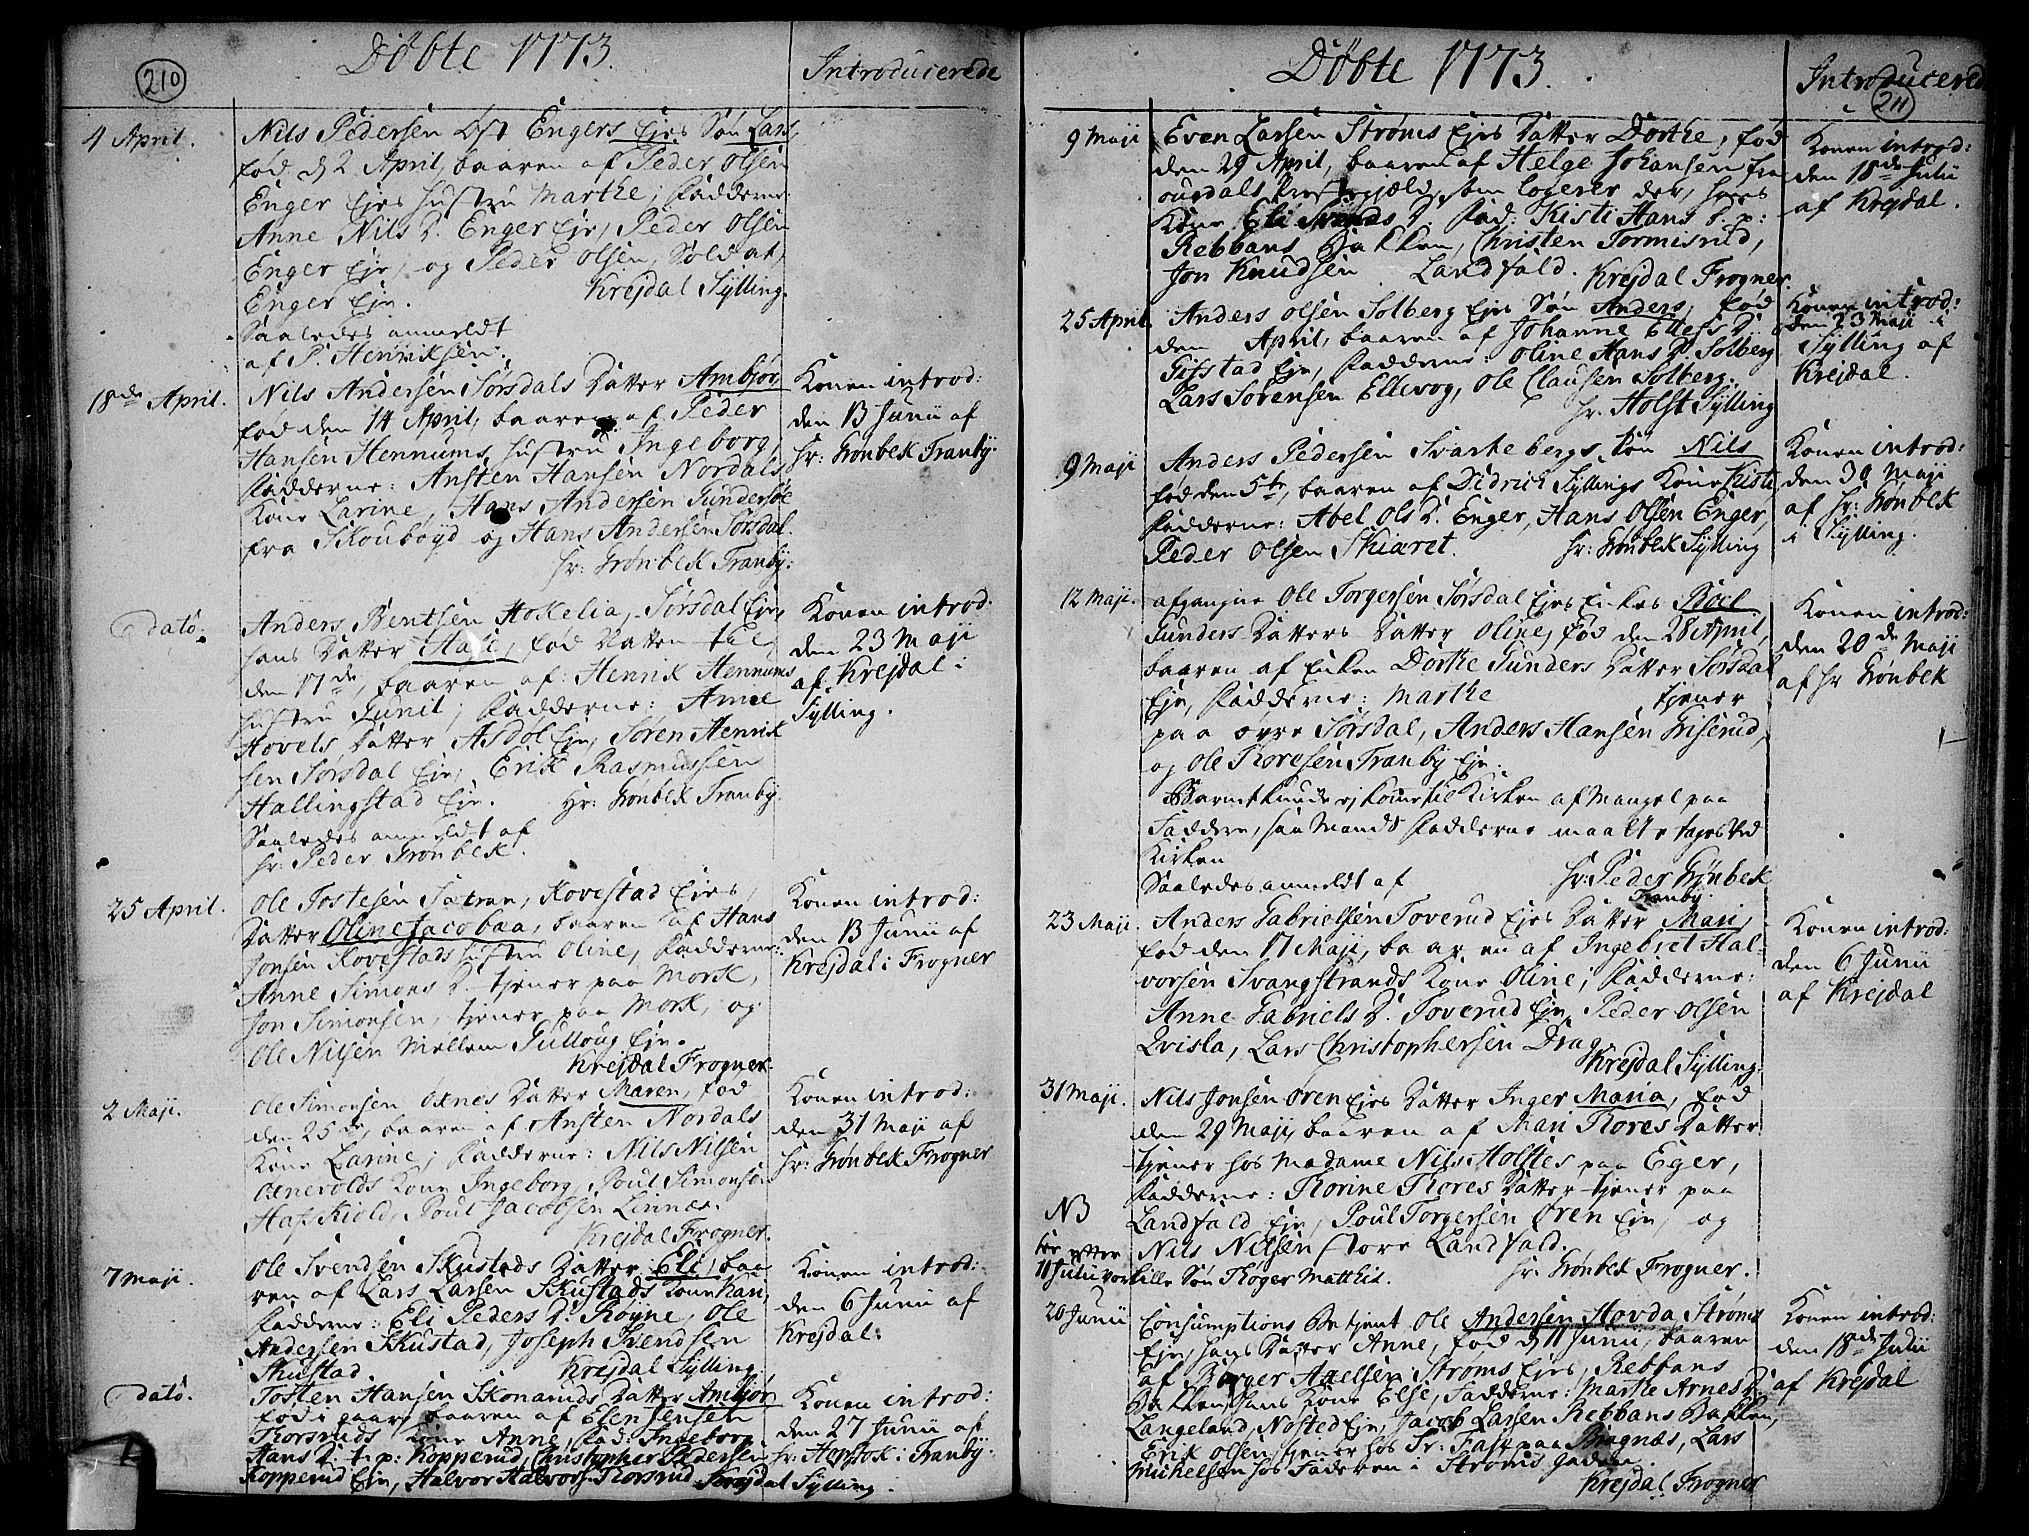 210
Döbte 1773.
Introducerede
4 April.
Nils Pedersen Öst Engers Ejes Sön Lars,
föd d 2 April, baaren af Peder Olsen
Enger Ejes Hustru Marthe; Fadderne
Anne Nils D. Enger Eje, Peder Olsen
Enger Eje, og Peder Olsen, Soldat,
Enger Eje.
Krejdal Sylling.
Saaledes anmeldt
af P. Henriksen.
18de April.
Nils Andersen Sörsdals Datter Ambjör
föd den 14 April, baaren af Peder
Hansen Hennums Hustru Ingeborg,
Fadderne: Ansten Hansen Nordals
Kone Larine, Hans Andersen Gundersöe
fra Skouböyd og Hans Andersen Sörsdal.
Hr: Grönbek Tranby.
Konen introd:
den 13 Junii af
Hr: Grönbek Tranby.
dato.
Anders Bentsen Hokelia, Sörsdal Eje,
hans Datter, föd Natten til
den 17de, baaren af: Henrik Hennums
Hustru Gunil; Fadderne: Anne
Hovels Datter Asdöl Eje, Sören Henrik
sen Sörsdal Eje, Erik Rasmussen
Hallingstad Eje. Hr: Grönbek Tranby.
Saaledes anmeldt af
Hr: Peder Grönbek.
Konen introd:
den 23 Maji
af Krejdal i
Sylling.
25 April.
Ole Tostesen Sætran, Kovestad Ejes,
Datter Oline Jacobaa, baaren af Hans
Jonsen Kovestads Hustru Oline, Fadderne:
Anne Simons D. tjener paa Morsk,
Jon Simonsen, tjener paa Morsk, og
Ole Nilsen Mellem Gulloug Eje.
Krejdal Frogner.
Konen introd:
den 13 Junii af
Krejdal i Frogner
2 Maji.
Ole Simonsen Oxnes Datter Maren, föd
den 25de, baaren af Ansten Nordals
Kone Larine; Fadderne: Nils Nilsen
Oxnevolds Kone Ingeborg, Poul Simonsen
Hafskiold, Poul Jacobsen Linnæs.
Krejdal Frogner.
Konen introd:
den 31 Maji af
Hr: Grönbek Frogner
7 Maji.
Ole Svendsen Skustads Datter Eli, baa
ren af Lars Larsen Skustads Kone Kari,
Fadderne: Eli Peders D: Röyne, Ole
Andersen Skustad, Joseph Svendsen
Skustad. Krejdal Sylling.
Konen introd:
den 6 Junii af
Krejdal.
dato.
Tosten Hansen Skonaruds Datter Ambjör
föd i gaar, baaren af Elen Jensen
Korsruds Kone Anne, Fad: Ingeborg
Hans D. t. p: Kopperud, Christopher Pedersen
Kopperud Eje, Halvor Halvors. Korsrud. Krejdal Sylling.
Konen introd:
den 27 Junii af
Hr: Hopstok i Tranby.
Döbte 1773.
Introducered
211
9 Maji
Even Larsen Ströms Ejes Datter Dorthe, föd
den 29 April, baaren af Helge Johansen fra
ourdals Præstegjæld, som logerer der, hans
Kone Eli D: Fad: Kisti Hans D. p:
Rebbans Bakken, Christen Tormisrud,
Jon Knudsen Landfald. Krejdal Frogner.
Konen introd:
den 18de Julii
af Krejdal.
25 April.
Anders Olsen Solberg Ejes Sön Anders, föd
den April, baaren af Johanne Ellefs D:
Gifstad Eje, Fadderne: Oline Hans D. Solberg
Lars Sörensen Ellevog, Ole Clausen Solberg.
Hr. Holst Sylling
Konen introd:
den 23 Maji i
Sylling af
Krejdal.
9 Maji
Anders Pedersen Svartebergs Sön Nils
föd den 5te, baaren af Didrich Syllings Kone Kisti
Fadderne: Abel Ols D. Enger, Hans Olsen Enger,
Peder Olsen Skiaret. Hr: Grönbek Sylling
Konen introd:
den 30 Maji
af Hr: Grönbek
i Sylling.
12 Maji.
afgangne Ole Torgersen Sörsdal Ejes Enkes Boel
Gunders Datters Datter Oline, föd den 28 April,
baaren af Enken Dorthe Gunders Datter Sörsdal
Eje, Fadderne: Marthe tjener
paa övre Sörsdal, Anders Hansen Griserud,
og Ole Thoresen Tranby Eje.
Barnet kunde ej komme til Kirken af Mangel paa
Faddere, saa Mands Fadderne maatte tages ved
Kirken
Saaledes anmeldt af Hr: Peder Grönbek
Tranby.
Konen introd:
den 20de Maji
af Hr Grönbek
23 Maji.
Anders Gabrielsen Toverud Ejes Datter Mari,
föd den 17 Maji, baaren af Ingebret Hal-
vorsen Svangstrands Kone Oline; Fadderne:
Anne Gabriels D. Toverud Eje, Peder Olsen
Qvisla, Lars Christophersen Drag.
Krejdal Sylling.
Konen introd:
den 6 Junii
af Krejdal
31 Maji.
Nils Jonsen Ören Ejes Datter Inger Maria, föd
den 29 Maji, baaren af Mari Thores Datter
tjener hos Madame Nils Holtes paa Eger,
Fadderne: Thorine Thores Datter tjener paa
Landfald Eje, Poul Torgersen Ören Eje, og
Nils Nilsen store Landfald.
Hr: Grönbek Frogner.
NB
her efter
11 Julii vor lille Sön Thöger Matthis.
20 Junii
Consumptions Betjent Ole Andersen Hovda Ströms
Eje, hans Datter Anne, föd d 11 Junii, baaren
af Börger Axelsen Ströms Ejes, Rebbans
Bakken, hans Kone Else, Fadderne: Marthe Arnes D.
Langeland, Nösted Eje, Jacob Larsen Rebbans Bakken,
Erik Olsen, tjener hos Sr: Fast paa Bragnæs, Lars
Mickelsen hos Faderen i Ströms gaden.
Krejdal Frogner
Konen introd:
den 18de Julii
af Krejdal